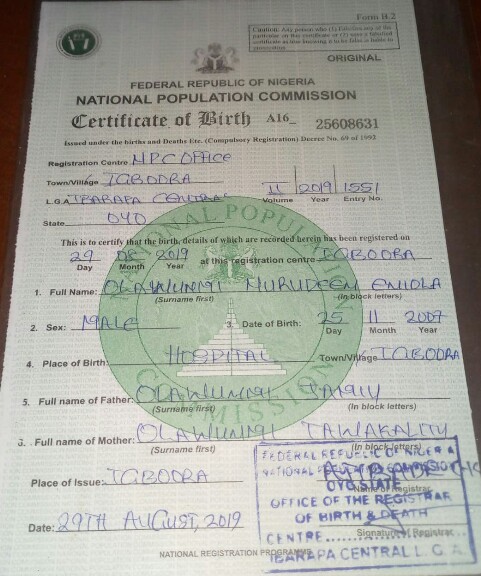 Form H.2
Caution: Any person who (1) falsifies any of the
particular on this certificate or (2) uses a falsified
certificate as true knowing it to be false is liable to
prosecution
ORIGINAL
FEDERAL REPUBLIC OF NIGERIA
NATIONAL POPULATION COMMISSION
Certificate of Birth A16_ 25608631
Issued under the births and Deaths Etc. (Compulsory Registration) Decree No. 69 of 1992
Registration Centre NPC OFFICE
Town/Village IGBOORA
L.G.A IBARAPA CENTRAL 11 2019 1551
Volume Year Entry No.
State OYO
This is to certify that the birth, details of which are recorded herein has been registered on
29 08 2019 at this registration centre IGBOORA
Day Month Year
1. Full Name: OLAWUNMI NURUDEEN ENIOLA
(Surname first) (In block letters)
2. Sex: MALE 3. Date of Birth: 25 11 2007
Day Month Year
4. Place of Birth: HOSPITAL Town/Village IGBOORA
5. Full name of Father: OLAWUNMI
(Surname first) (In block letters)
6. Full name of Mother: OLAWUNMI TAWAKALITU
(Surname first) (In block letters)
Place of Issue: IGBOORA
Name of Registrar
Date: 29TH AUGUST, 2019
Signature of Registrar
NATIONAL REGISTRATION PROGRAMME
FEDERAL REPUBLIC OF NIGERIA
NATIONAL POPULATION COMMISSION
OYO STATE
OFFICE OF THE REGISTRAR
OF BIRTH & DEATH
CENTRE
IBARAPA CENTRAL L.G.A.
NATIONAL POPULATION COMMISSION